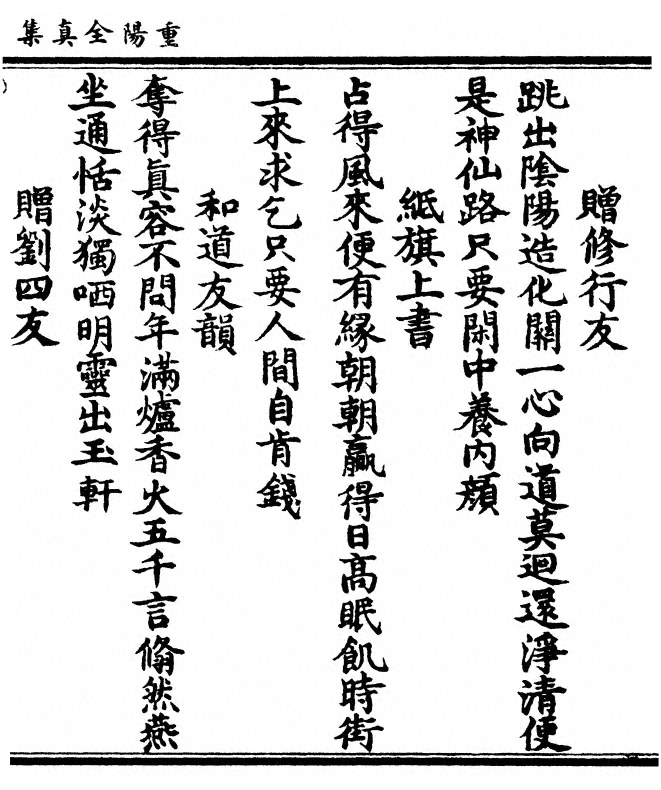 重陽全真集
贈修行友
跳出陰陽造化關一心向道莫迴還淨清便
是神仙路只要閑中養內顏
紙旗上書
占得風來便有緣朝朝贏得日高眠飢時街
上來求乞只要人間自肯錢
和道友韻
奪得眞容不問年滿爐香火五千言翛然燕
坐通恬淡獨哂明靈出玉軒
贈劉四友